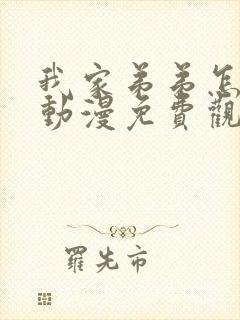 我家弟弟怎
動漫免費觀
羅先市